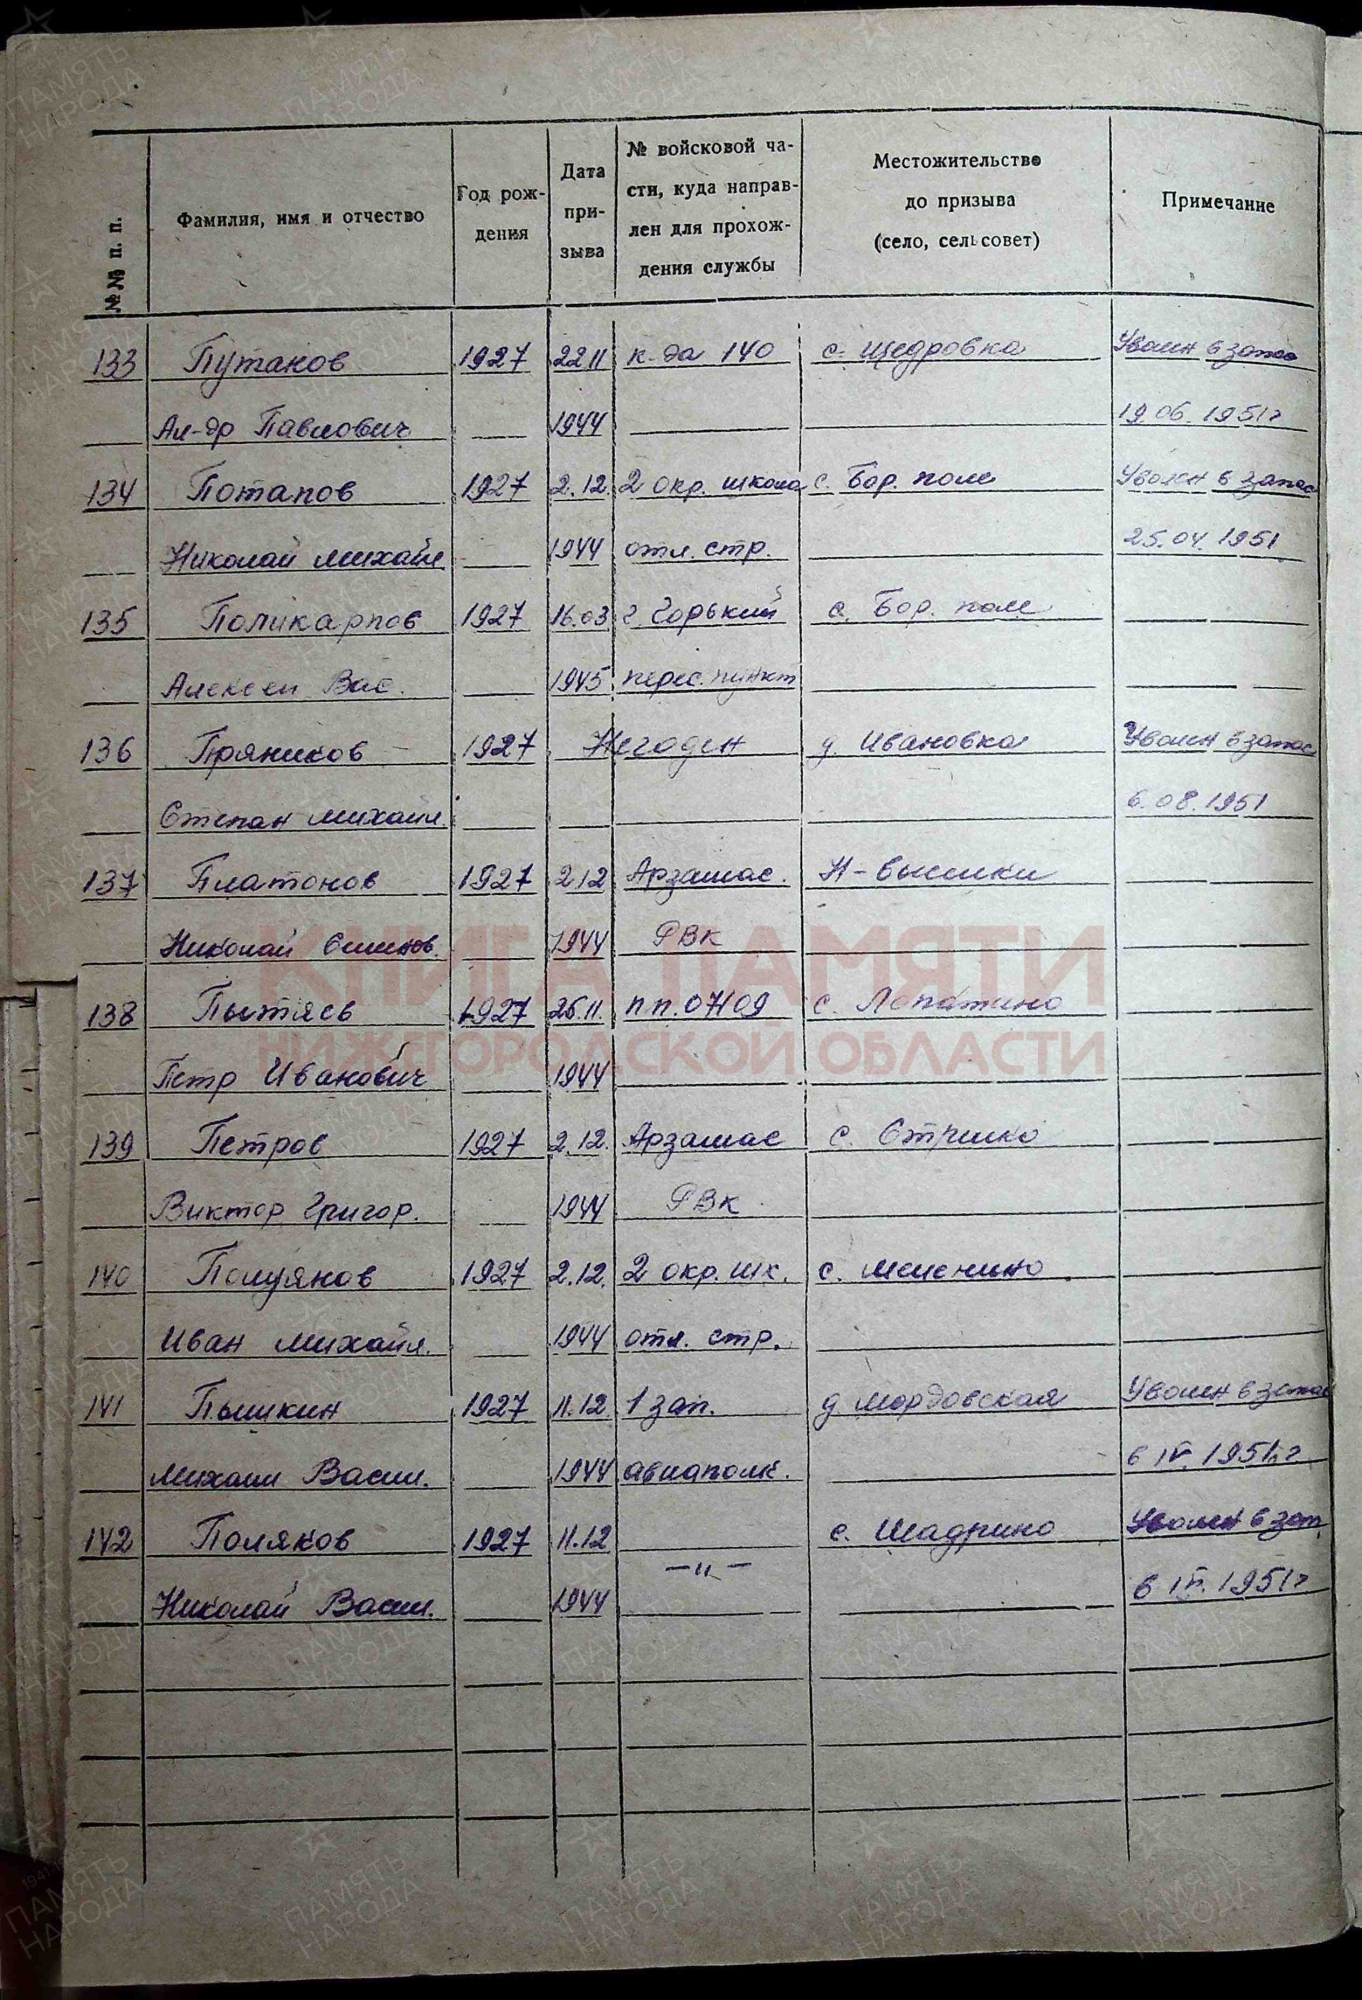 №№ п. п.
Фамилия, имя и отчество
Год рож-
дения
Дата
при-
зыва
№ войсковой ча-
сти, куда направ-
лен для прохож-
дения службы
Местожительство
до призыва
(село, сельсовет)
Примечание
133 Путанов 1927 22 11 к-да 140 с. Щедровка Уволен в запас
Ал-др Павлович 1944 19.06.1951г
134 Потапов 1927 2.12. 2 окр. школа с. Бор. поле Уволен в запас
Николай Михайл. 1944 отл. стр. 25.04.1951
135 Поликарпов 1927 16.03 г Горький с. Бор. поле
Алексей Вас. 1945 перес. пункт
136 Пряников 1927 Негоден д. Ивановка Уволен в запас
Степан Михайл. 6.08.1951
137 Платонов 1927 2 12 Арзамас. Н-Высики
Николай 1944 РВК
138 Пытяев 1927 26.11. п п. 07109 с. Лопатино
Петр Иванович 1944
139 Петров 1927 2.12. Арзамас с.
Виктор Григор. 1944 РВК
140 Полуянов 1927 2.12. 2 окр. шк. с.
Иван Михайл. 1944 отл. стр.
141 Пышкин 1927 11.12. 1 зап. д Мордовская Уволен в запас
Михаил Васил. 1944 авиаполк. 6 IV. 1951г
142 Поляков 1927 11.12 с. Шадрино Уволен в зап.
— " —
Николай Васил. 1944 6 IV. 1951г
КНИГА ПАМЯТИ
НИЖЕГОРОДСКОЙ ОБЛАСТИ
ПАМЯТЬ
НАРОДА